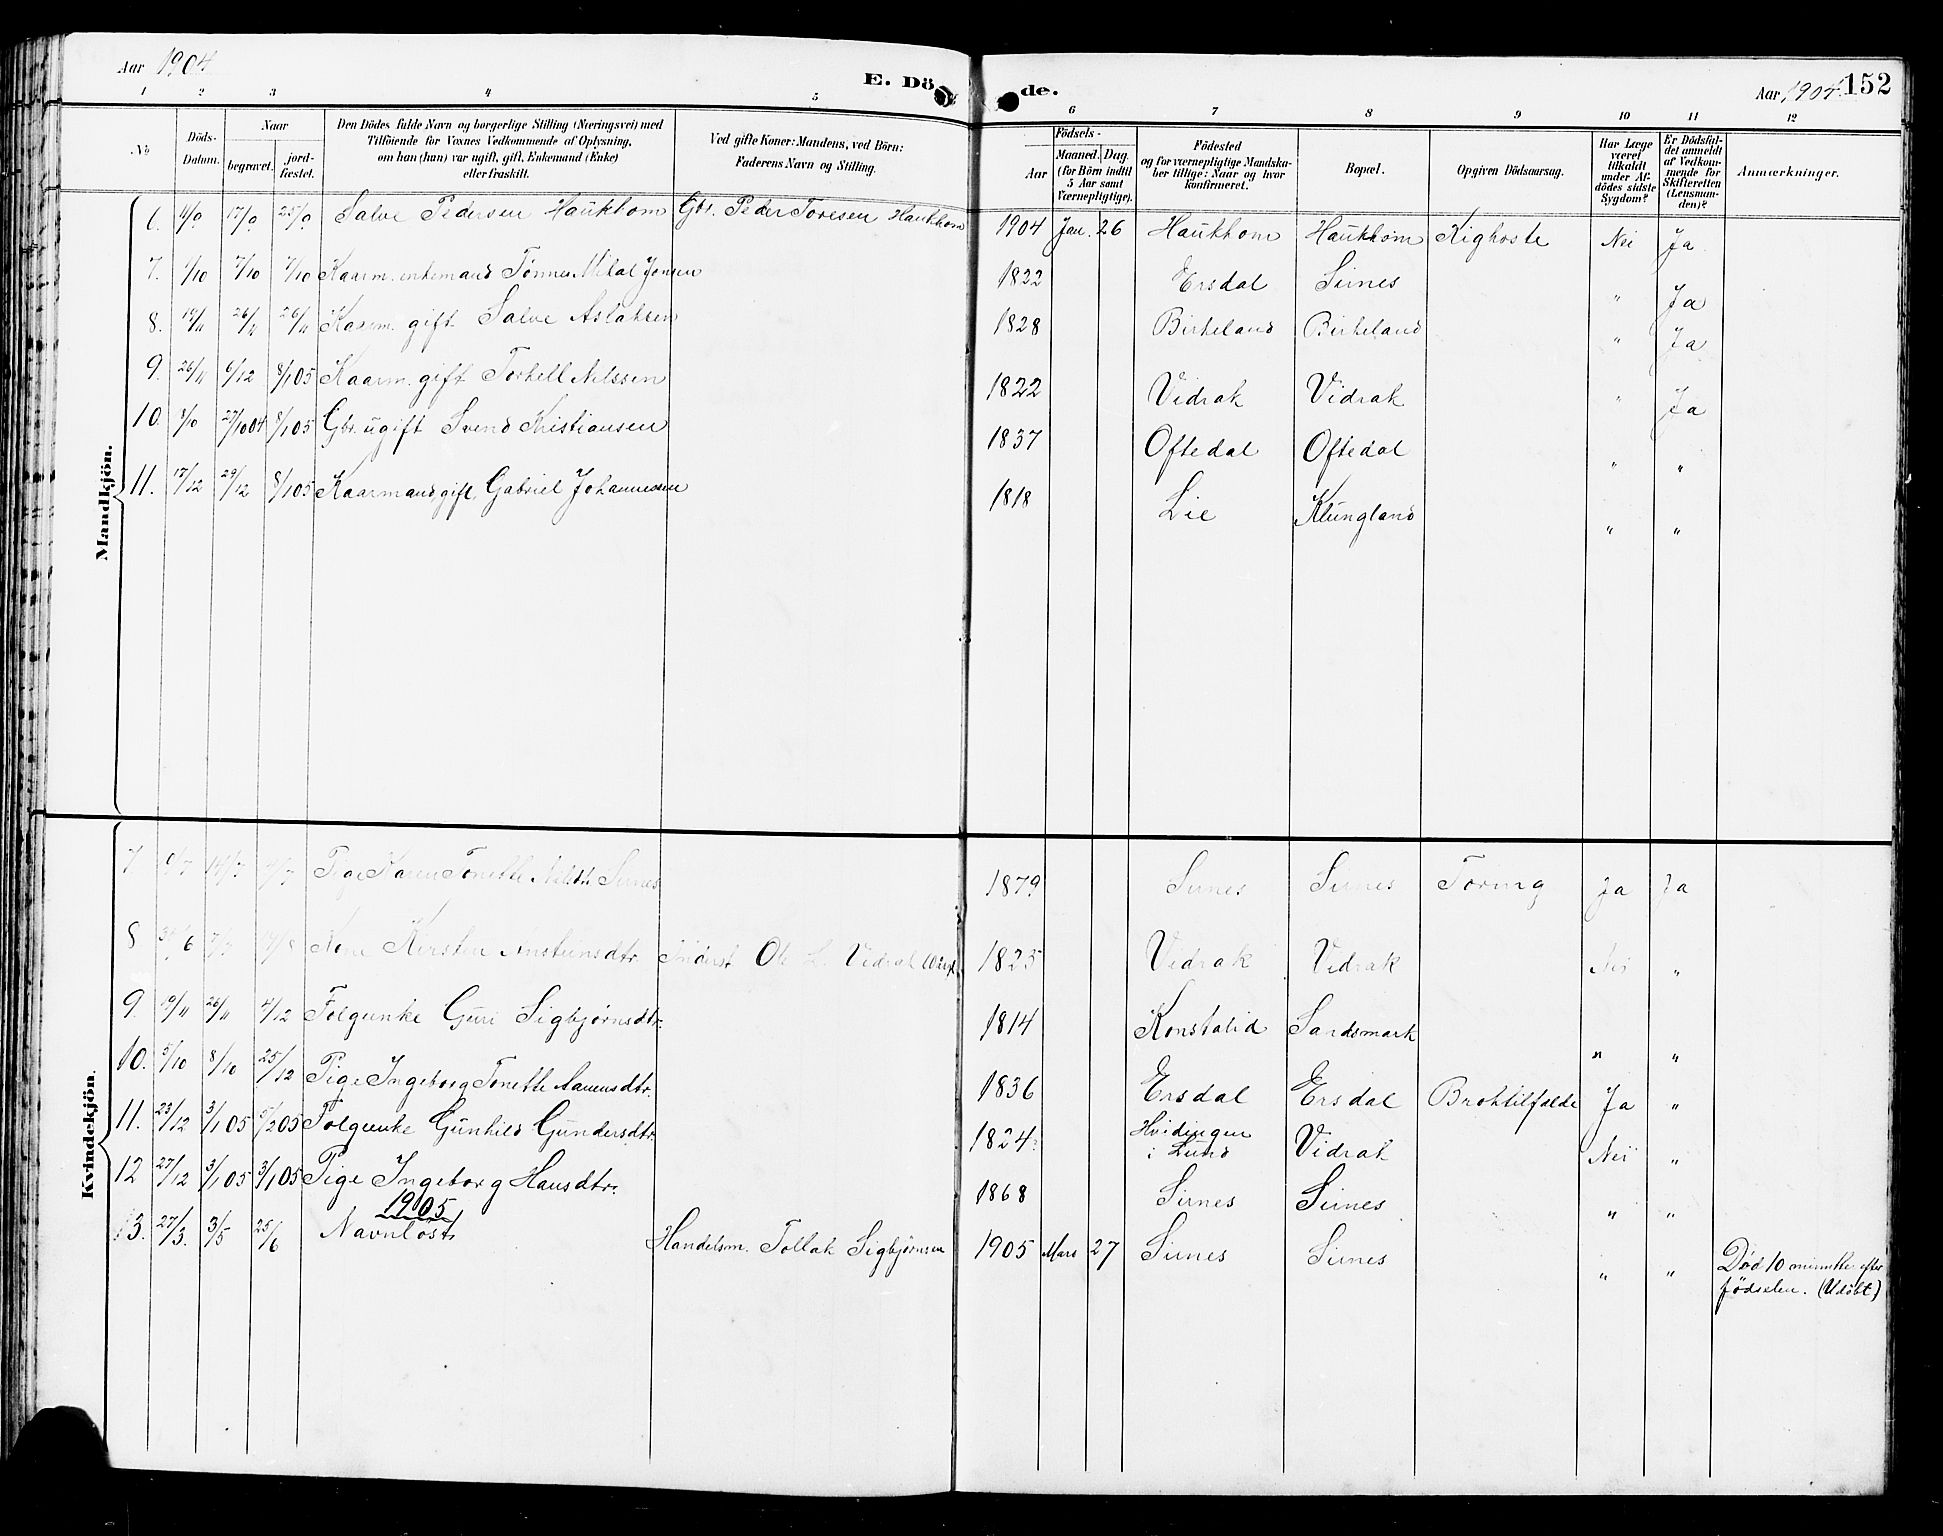 Aar 1904
E. Dö de.
Aar 1904 152
1 2 3 4 5 6 7 8 9 10 11 12
No
Döds-Datum.
Naar
begravet.
jord-fæstet.
Den Dödes fulde Navn og borgerlige Stilling (Næringsvei) med
Tilföiende for Voxnes Vedkommende af Oplysning,
om han (hun) var ugift, gift, Enkemand (Enke)
eller fraskilt.
Ved gifte Koner: Mandens, ved Börn:
Faderens Navn og Stilling.
Födsels-
Aar
Maaned. Dag.
(for Börn indtil
5 Aar samt
Værnepligtige).
Födested
og for værnepligtige Mandska-
ber tillige: Naar og hvor
konfirmeret.
Bopæl.
Opgiven Dödsaarsag.
Har Læge
været
tilkaldt
under Af-
dödes sidste
Sygdom?
Er Dödsfal-
det anmeldt
af Vedkom-
mende for
Skifteretten
(Lensman-
den)?
Anmærkninger.
Mandkjön.
6. 17/9 25/9 Salve Pedersen Haukhom Gbr. Peder Toresen Haukhom 1904 Jan. 26 Haukhom Haukhom Kighoste Nei Ja
7. 1/10 7/10 7/10 Kaarm. enkemand Tønnes Mikal Jonsen 1822 Ersdal Sirnes " Ja
8. 19/11 26/11 26/11 Kaarm. gift Salve Aslaksen 1828 Birkeland Birkeland " Ja
9. 26/11 6/12 8/1 05 Kaarm. gift Torkell Nilssen 1822 Vidrak Vidrak " Ja
10. 1/10 27/10 04 8/1 05 Gbr. ugift Svend Kristiansen 1837 Oftedal Oftedal " "
11. 17/12 29/12 8/1 05 Kaarmand gift. Gabriel Johannessen 1818 Lie Klungland " "
Kvindekjön.
7. Pige Karen Tonette Sirnes 1879 Sirnes Sirnes Tæring Ja Ja
8 7/7 Kone Kirsten Ansteinsdtr. Inderst Ole L. Vidrak 1825 Vidrak Vidrak Nei "
9. 19/11 26/11 4/12 Følgenke Guri Sigbjørnsdtr. 1814 Konstalid Sandsmark " "
10. 5/10 8/10 25/12 Pige Ingeborg Tonette Aanensdtr. 1836 Ersdal Ersdal Broktilfælde Ja "
11. 23/12 3/1 05 5/2 05 Følgenke Gunhild Gundersdtr. 1824 Hvidingen i Lund Vidrak Nei "
12 27/12 3/1 05 3/1 05 Pige Ingeborg Hansdtr. 1868 Sirnes Sirnes " "
1905
13. 27/3. 3/5 25/6 Navnløst Handelsm. Tollak Sigbjørnsen 1905 Mars 27 Sirnes Sirnes " " Død 10 minutter efter
fødselen. (Udøbt)